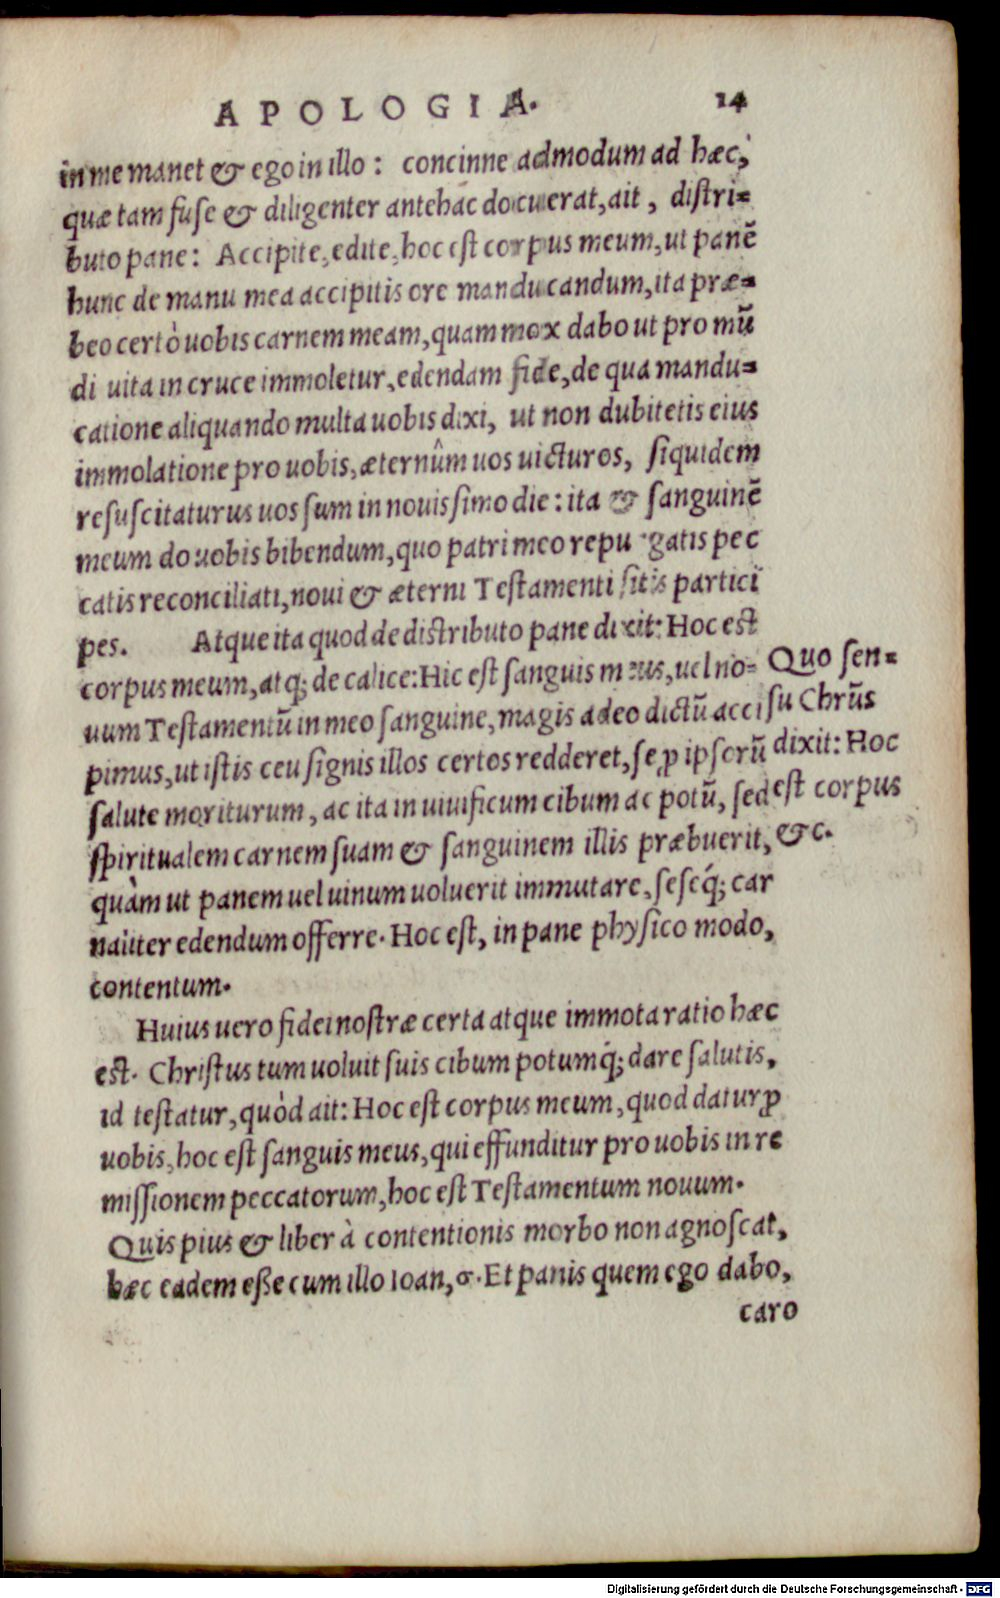 APOLOGIA. 14
in me manet & ego in illo: concinne admodum ad hæc,
quæ tam fuse & diligenter antehac docuerat, ait, distri-
buto pane: Accipite, edite, hoc est corpus meum, ut panē
hunc de manu mea accipitis ore manducandum, ita præ-
beo certò uobis carnem meam, quam mox dabo ut pro mū
di uita in cruce immoletur, edendam fide, de qua mandu-
catione aliquando multa uobis dixi, ut non dubitetis eius
immolatione pro uobis, æternûm uos uicturos, siquidem
resuscitaturus uos sum in nouissimo die: ita & sanguinē
meum do uobis bibendum, quo patri meo repurgatis pec
catis reconciliati, noui & æterni Testamenti sitis partici
pes. Atque ita quod de distributo pane dixit: Hoc est
corpus meum, atq; de calice: Hic est sanguis meus, uel no-
uum Testamentū in meo sanguine, magis adeo dictū acci
pimus, ut istis ceu signis illos certos redderet, se ꝓ ipsorū
salute moriturum, ac ita in uiuificum cibum ac potū, sed
spiritualem carnem suam & sanguinem illis præbuerit,
quàm ut panem uel uinum uoluerit immutare, seseq́; car
naliter edendum offerre. Hoc est, in pane physico modo,
contentum.
Quo sen-
su Chrūs
dixit: Hoc
est corpus
&c.
Huius uero fidei nostræ certa atque immota ratio hæc
est. Christus tum uoluit suis cibum potumq́; dare salutis,
id testatur, quòd ait: Hoc est corpus meum, quod datur ꝓ
uobis, hoc est sanguis meus, qui effunditur pro uobis in re
missionem peccatorum, hoc est Testamentum nouum.
Quis pius & liber à contentionis morbo non agnoscat,
hæc eadem esse cum illo Ioan, 6. Et panis quem ego dabo,
caro
Digitalisierung gefördert durch die Deutsche Forschungsgemeinschaft - DFG